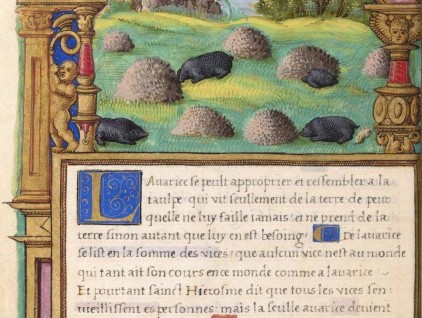 LAvarice se peult approprier et ressembler a la
taulpe, qui vit seullement de la terre de peur
quelle ne luy faille iamais: et ne prend de la
terre sinon autant que luy en est besoing. De lavarice
se list en la somme des vices: que aulcun vice nest au monde
qui tant ait son cours en ce monde comme a lavarice.
Et pourtant sainct Hierosme dit que tous les vices sen
vieillissent es personnes: mais la seulle avarice devient